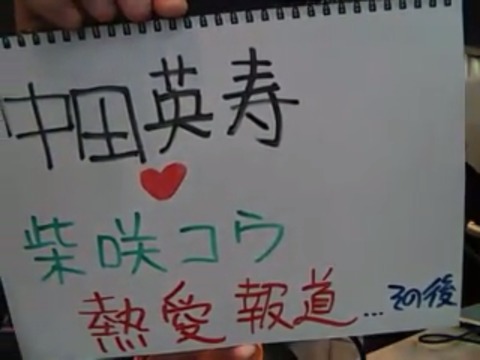 中田英寿
♥
柴咲コウ
熱愛報道...その後